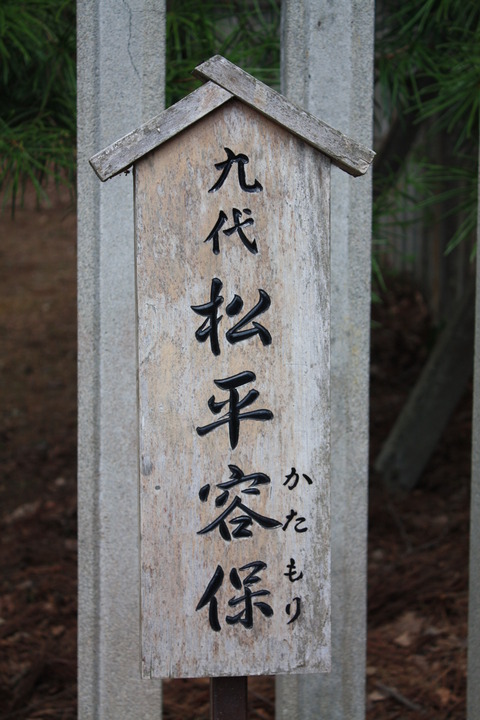 九代 松平容保
かたもり